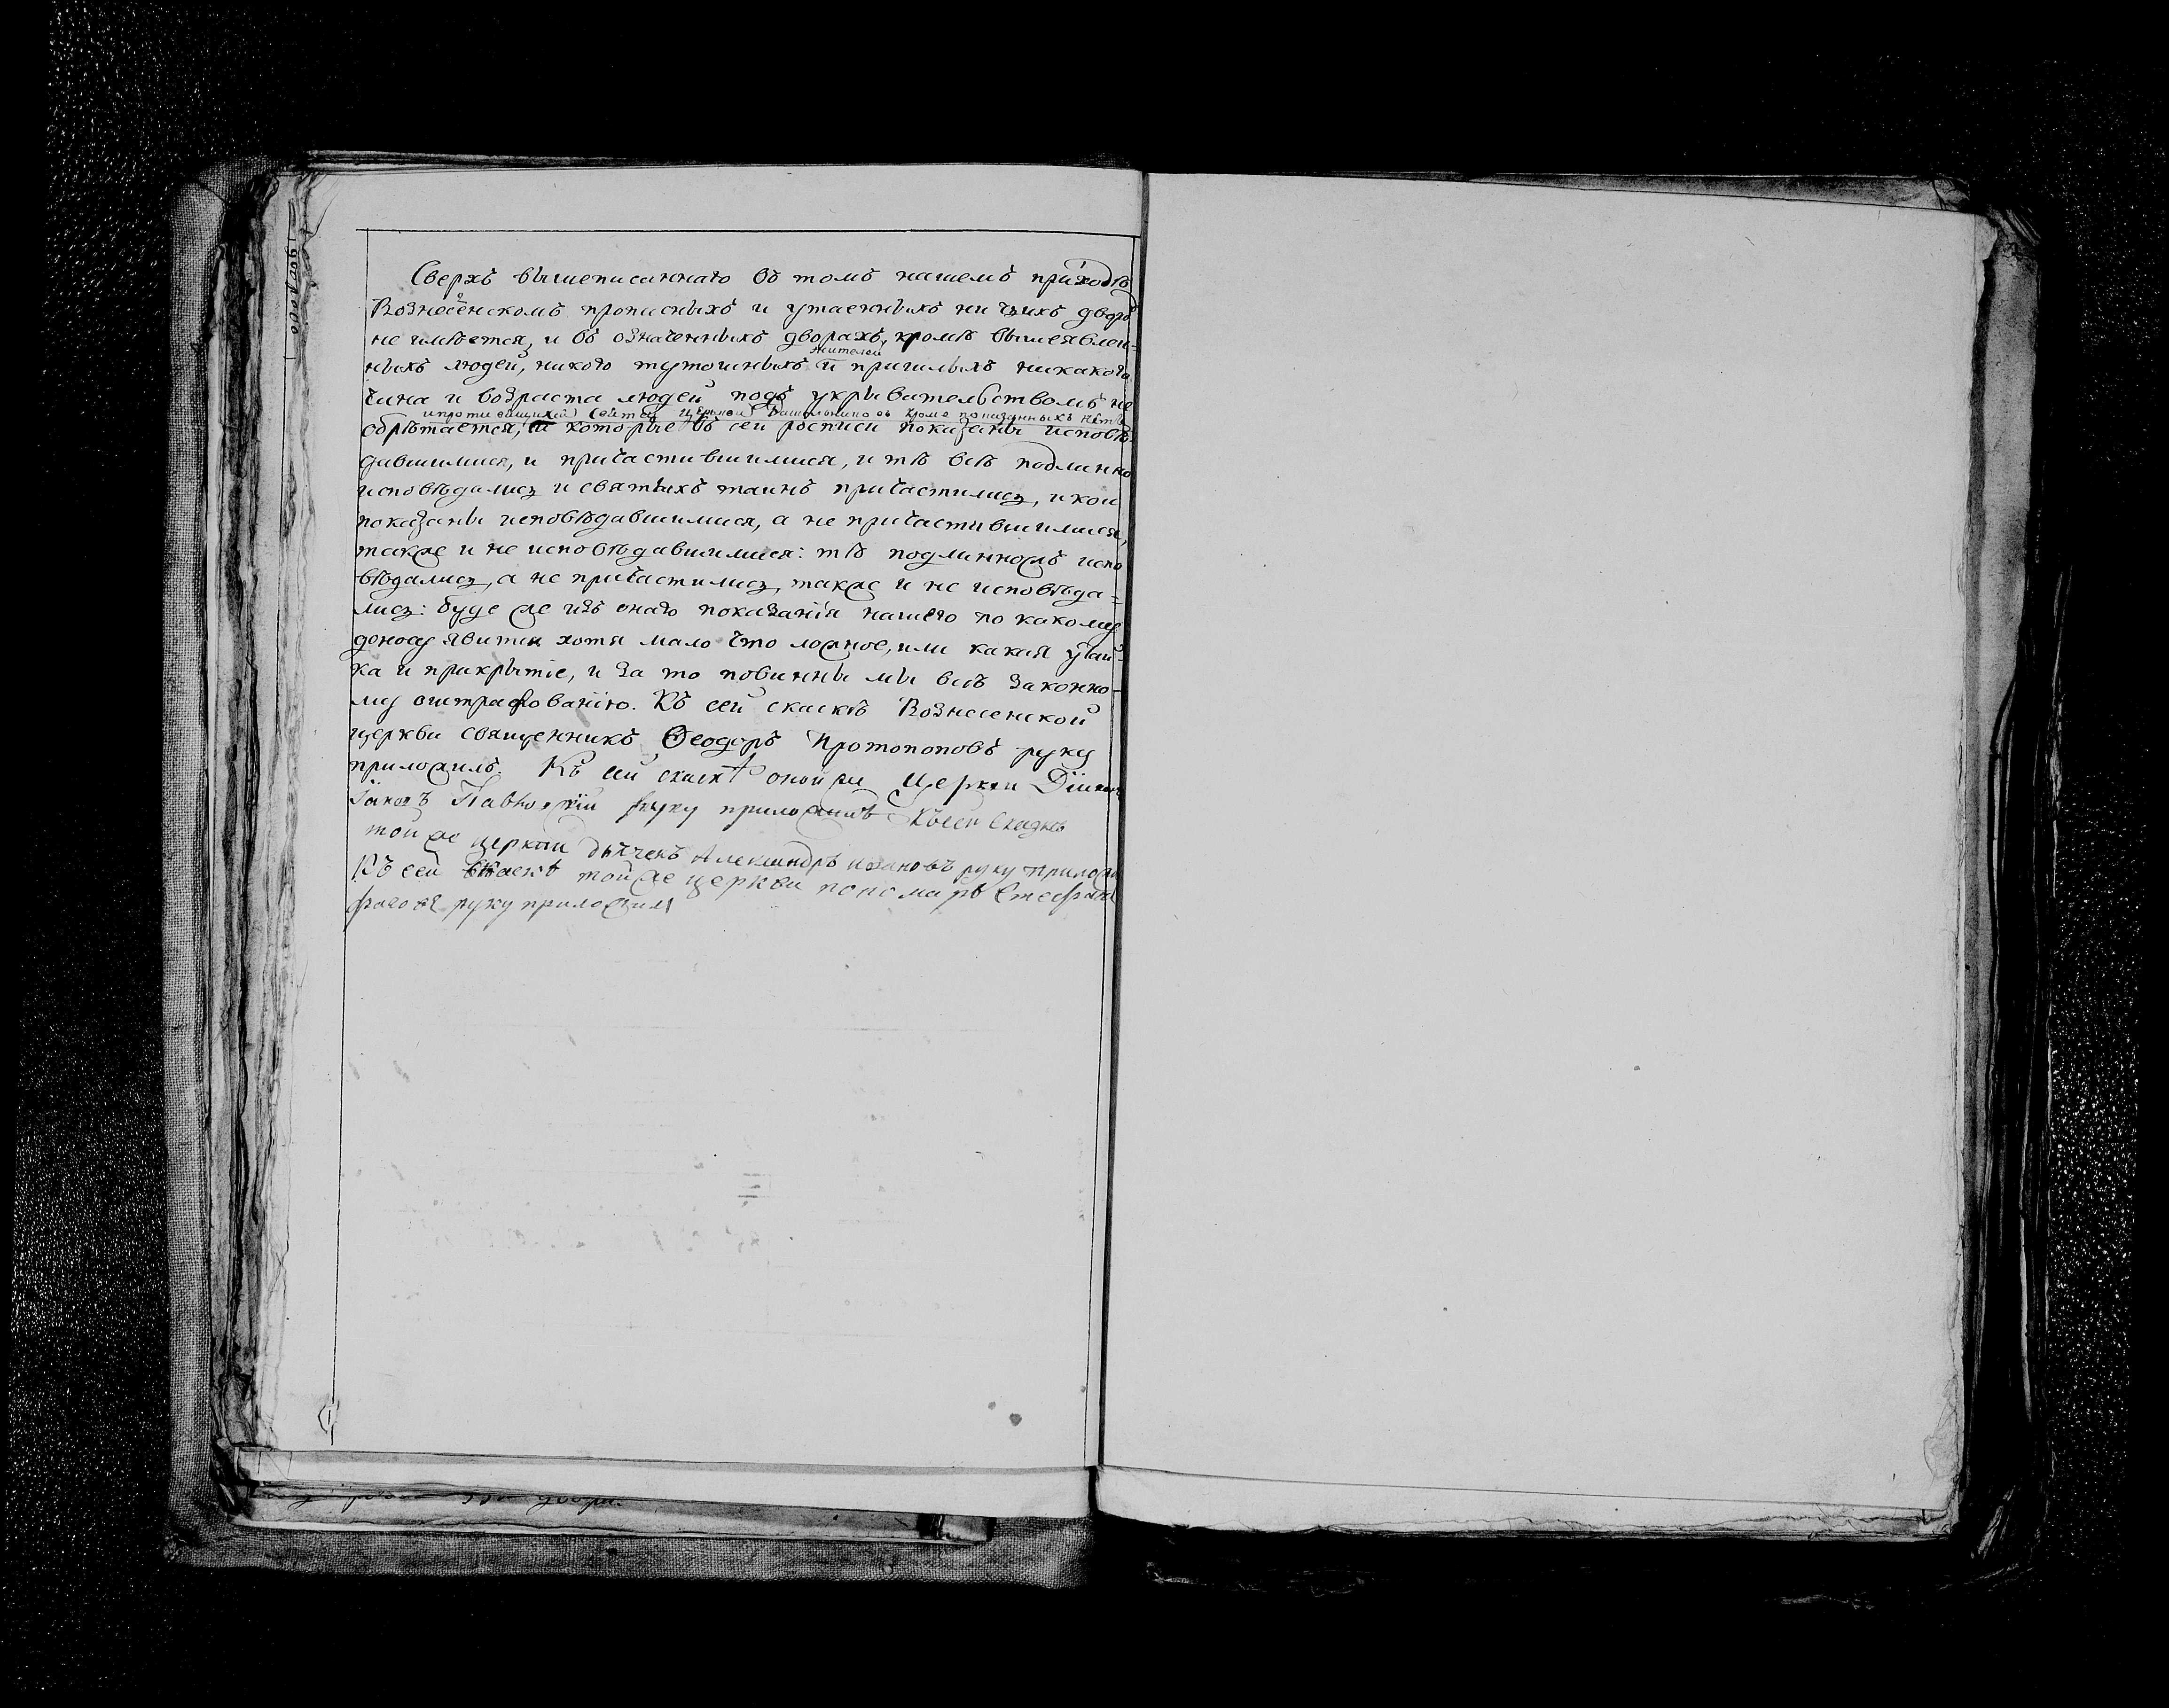 Сверхъ вышеписаннаго въ томъ нашемъ приходѣ
Вознесенскомъ прописныхъ и утаенныхъ ни чьихъ дворовъ
не имѣется, и въ означенныхъ дворахъ, кромѣ вышеявлен-
жителей
ныхъ людей, никого тутошныхъ и пришлыхъ никакого
чина и возраста людей подъ укривательствомъ не
и противящихся святѣй церкви раскольниковъ кроме показанныхъ нетъ
обрѣтается, и которые въ сей росписи показаны исповѣ-
давшимися, и причастившимися, и тѣ всѣ подлинно
исповѣдались и святыхъ таинъ причастились, и кои
показаны исповѣдавшимися, а не причастившимися,
также и не исповѣдавшимися: тѣ подлинножъ испо
вѣдались, а не причастились, также и не исповѣда=
лись: буде же изъ онаго показанія нашего по какому
доносу явится хотя мало что ложное, или какая утай-
ка и прикрытіе, и за то повинны мы всѣ законно-
му оштрафованію. Къ сей сказкѣ Вознесенской
церкви священникъ Ѳеодоръ Протопоповъ руку
приложилъ. Къ сей сказкѣ оной же церкви Діяконъ
Іаковъ руку приложилъ Къ сей
той же церкви дьячекъ Александръ Ивановъ руку приложи
Къ сей той же церкви пономарь Стефанъ
руку приложилъ